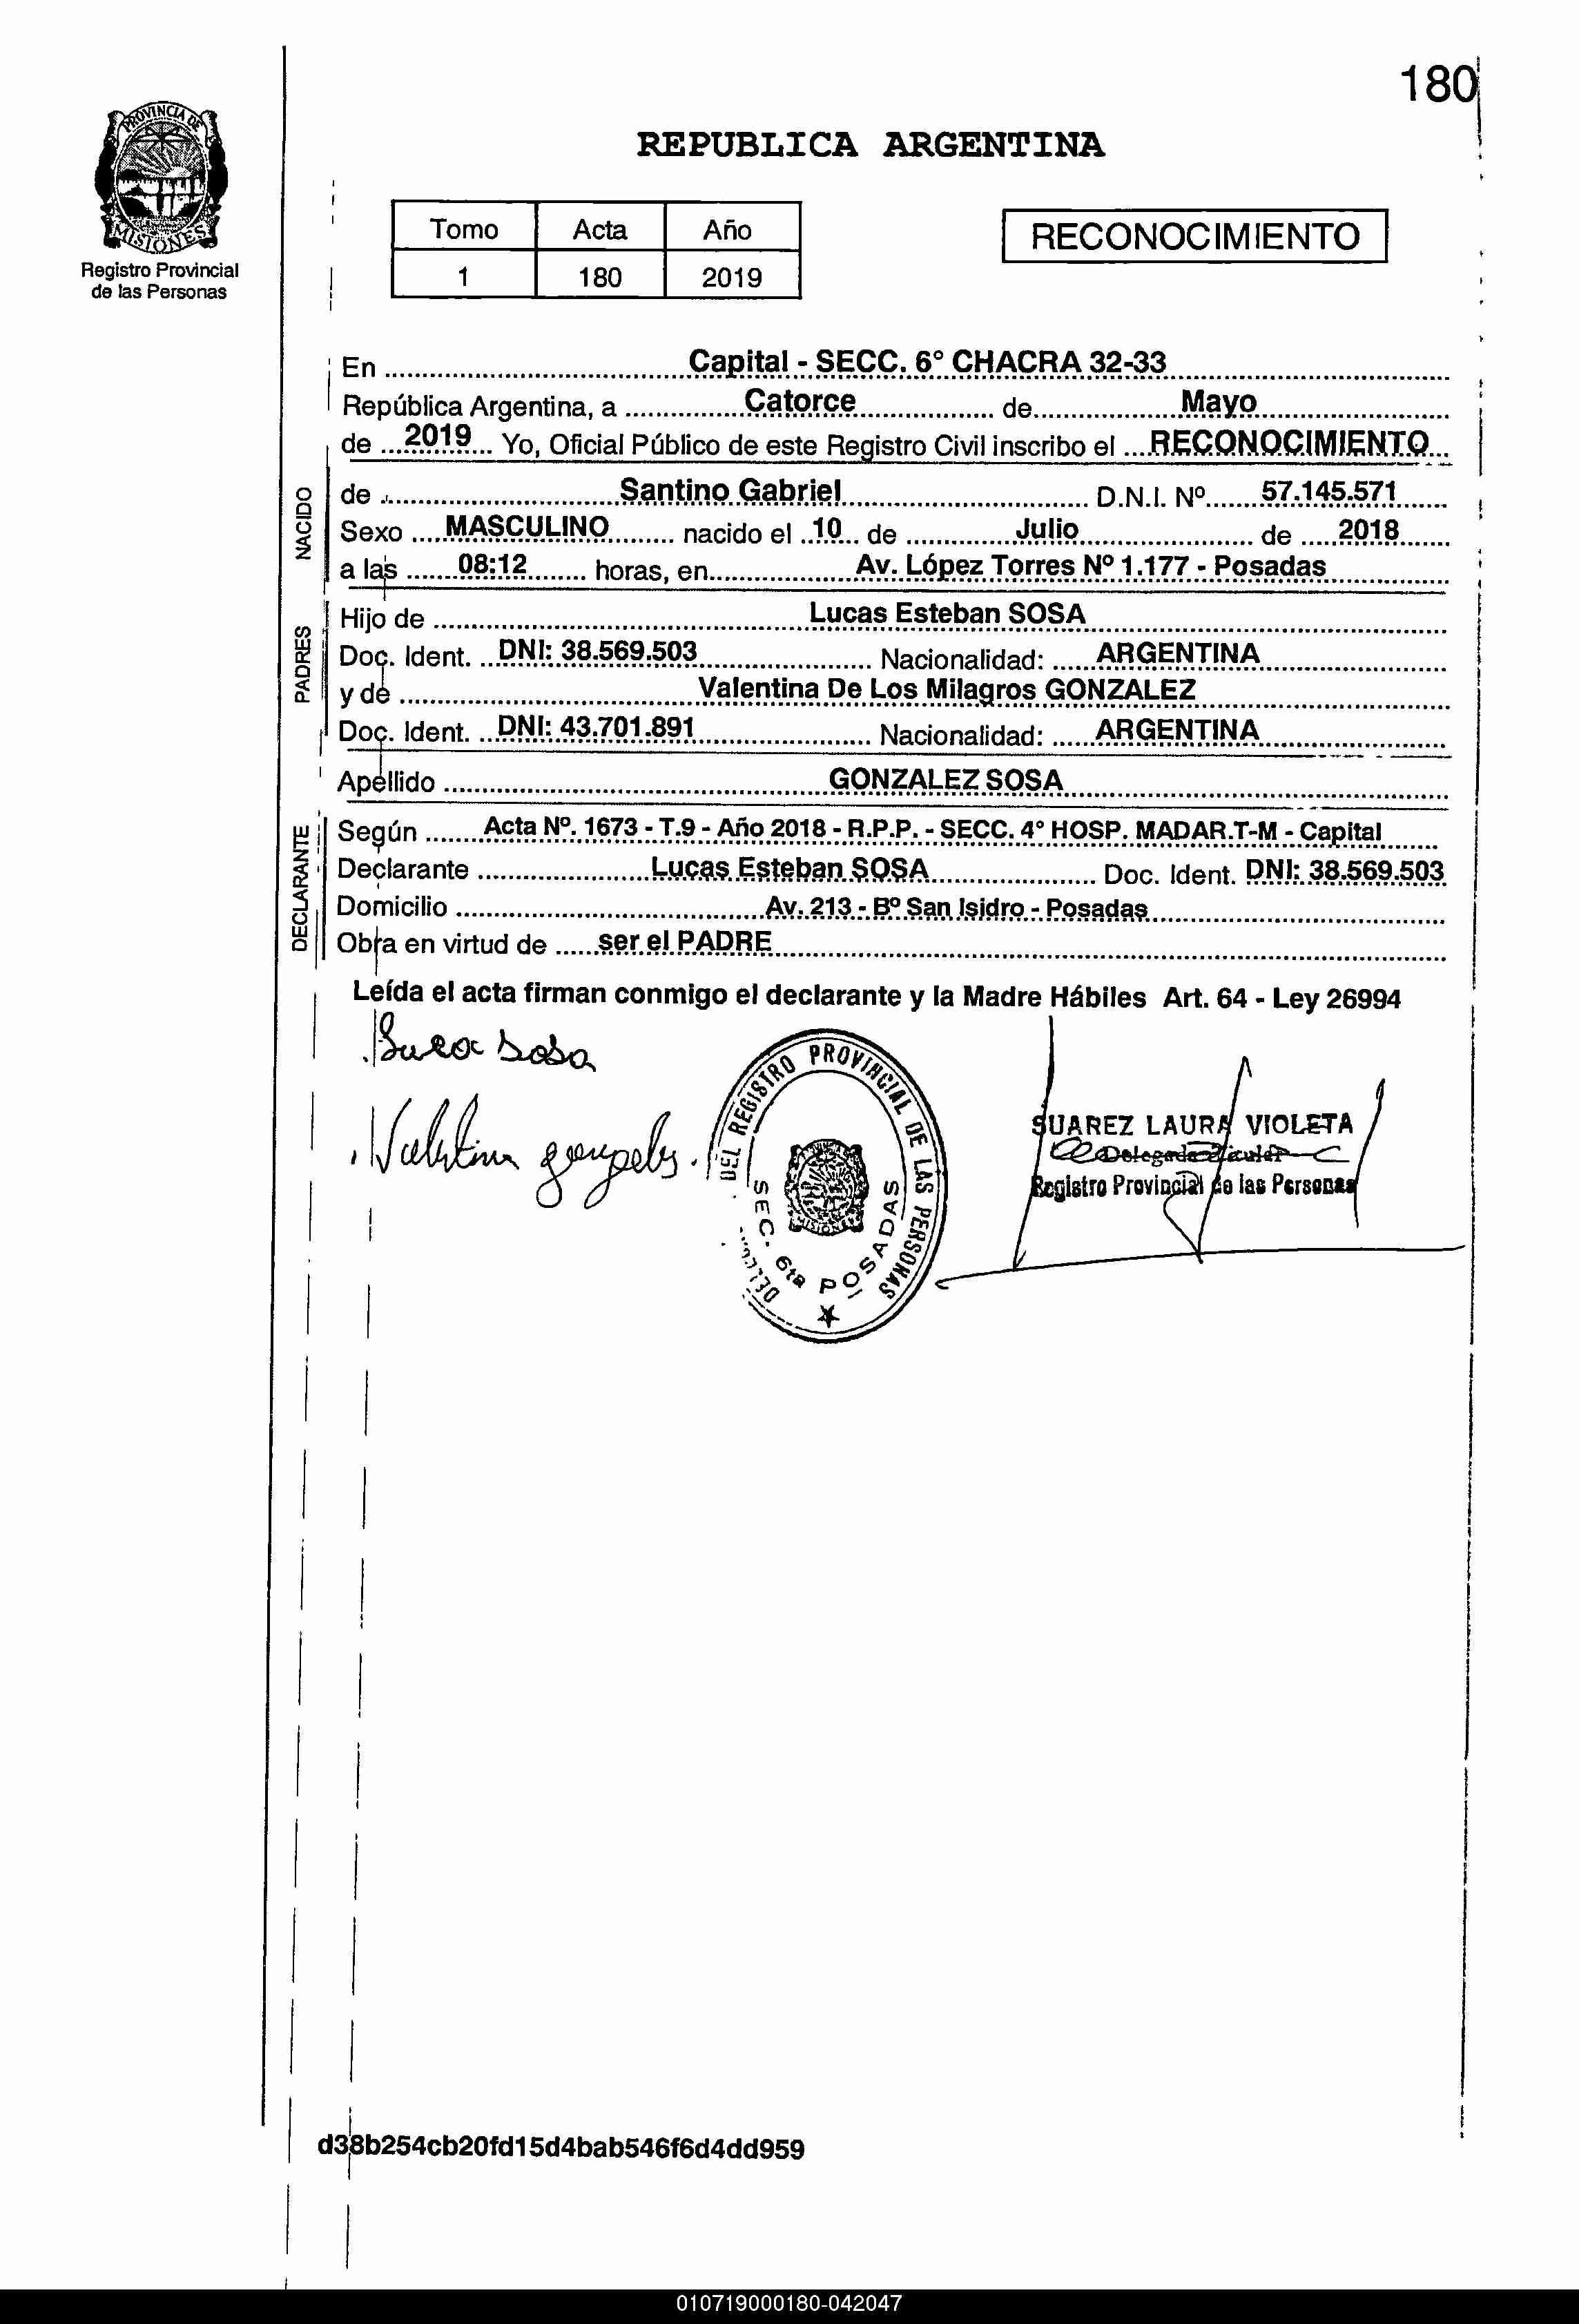 180
PROVINCIA DE
MISIONES
Registro Provincial
de las Personas
REPUBLICA ARGENTINA
Tomo Acta Año
1 180 2019
RECONOCIMIENTO
En Capital - SECC. 6° CHACRA 32-33
República Argentina, a Catorce de Mayo
de 2019 Yo, Oficial Público de este Registro Civil inscribo el RECONOCIMIENTO
NACIDO
de Santino Gabriel D.N.I. Nº 57.145.571
Sexo MASCULINO nacido el 10 de Julio de 2018
a las 08:12 horas, en Av. López Torres Nº 1.177 - Posadas
PADRES
Hijo de Lucas Esteban SOSA
Doc. Ident. DNI: 38.569.503 Nacionalidad: ARGENTINA
y de Valentina De Los Milagros GONZALEZ
Doc. Ident. DNI: 43.701.891 Nacionalidad: ARGENTINA
Apellido GONZALEZ SOSA
DECLARANTE
Según Acta Nº. 1673 - T.9 - Año 2018 - R.P.P. - SECC. 4° HOSP. MADAR.T-M - Capital
Declarante Lucas Esteban SOSA Doc. Ident. DNI: 38.569.503
Domicilio Av. 213 - Bº San Isidro - Posadas
Obra en virtud de ser el PADRE
Leída el acta firman conmigo el declarante y la Madre Hábiles Art. 64 - Ley 26994
Sosa
Valentina
DEL REGISTRO PROVINCIAL DE LAS PERSONAS
SEC. 6ta POSADAS
MISIONES
SUAREZ LAURA VIOLETA
Delegada Titular
Registro Provincial de las Personas
d38b254cb20fd15d4bab546f6d4dd959
010719000180-042047